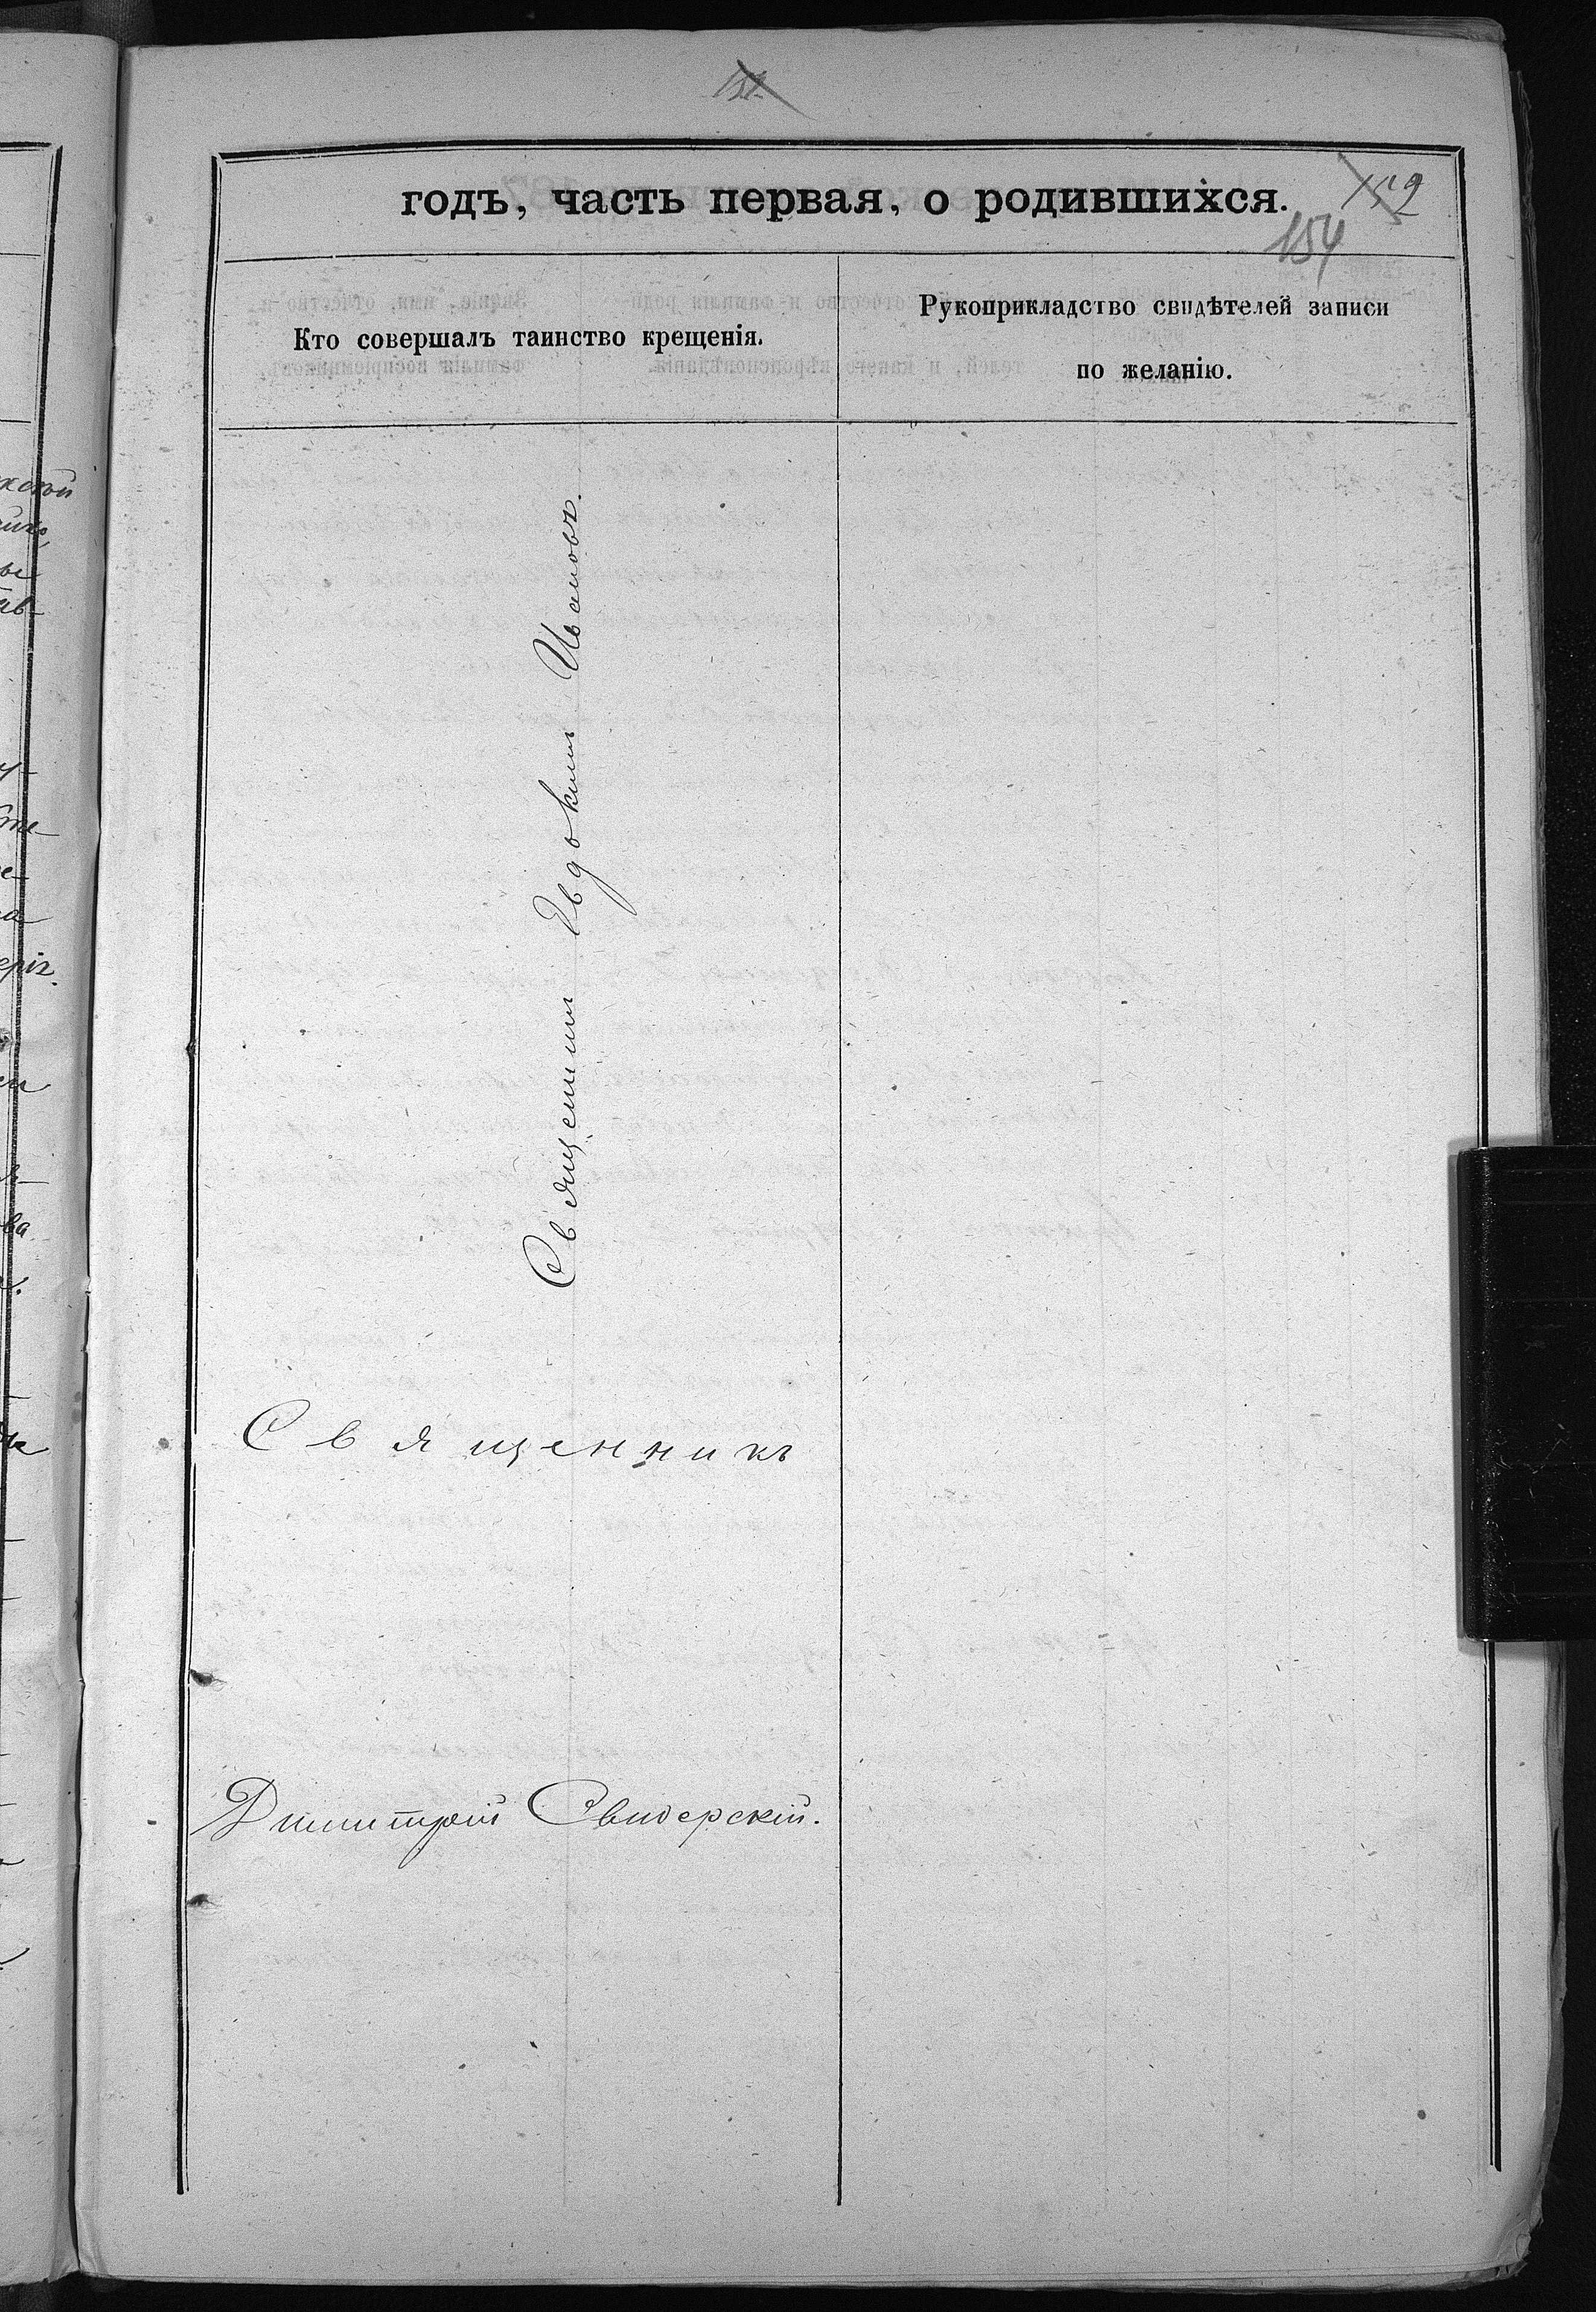 151
годъ, часть первая, о родившихся.
152
154
Кто совершалъ таинство крещенія.
Рукоприкладство свидѣтелей записи
по желанію.
Священникъ Евдокимъ Ивановъ.
Священникъ
Димитрій Свидерскій.